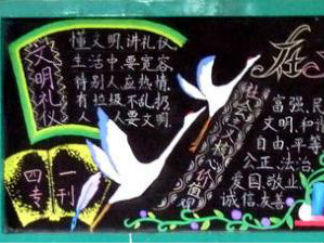 文明礼仪
懂文明,讲礼仪
生活中要宽容
待别人应热情
有垃圾不乱扔
人人要文明.
四一
专刊
社会主义核心价值观
在
富强,民
文明,和谐
自由,平等
公正,法治
爱国,敬业
诚信,友善